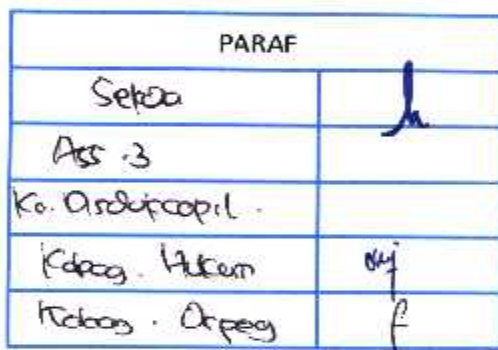 PARAF
Sekda
Ass. 3
Ka. Disdukcapil.
Kabag. Hukum
Kabag. Orpeg